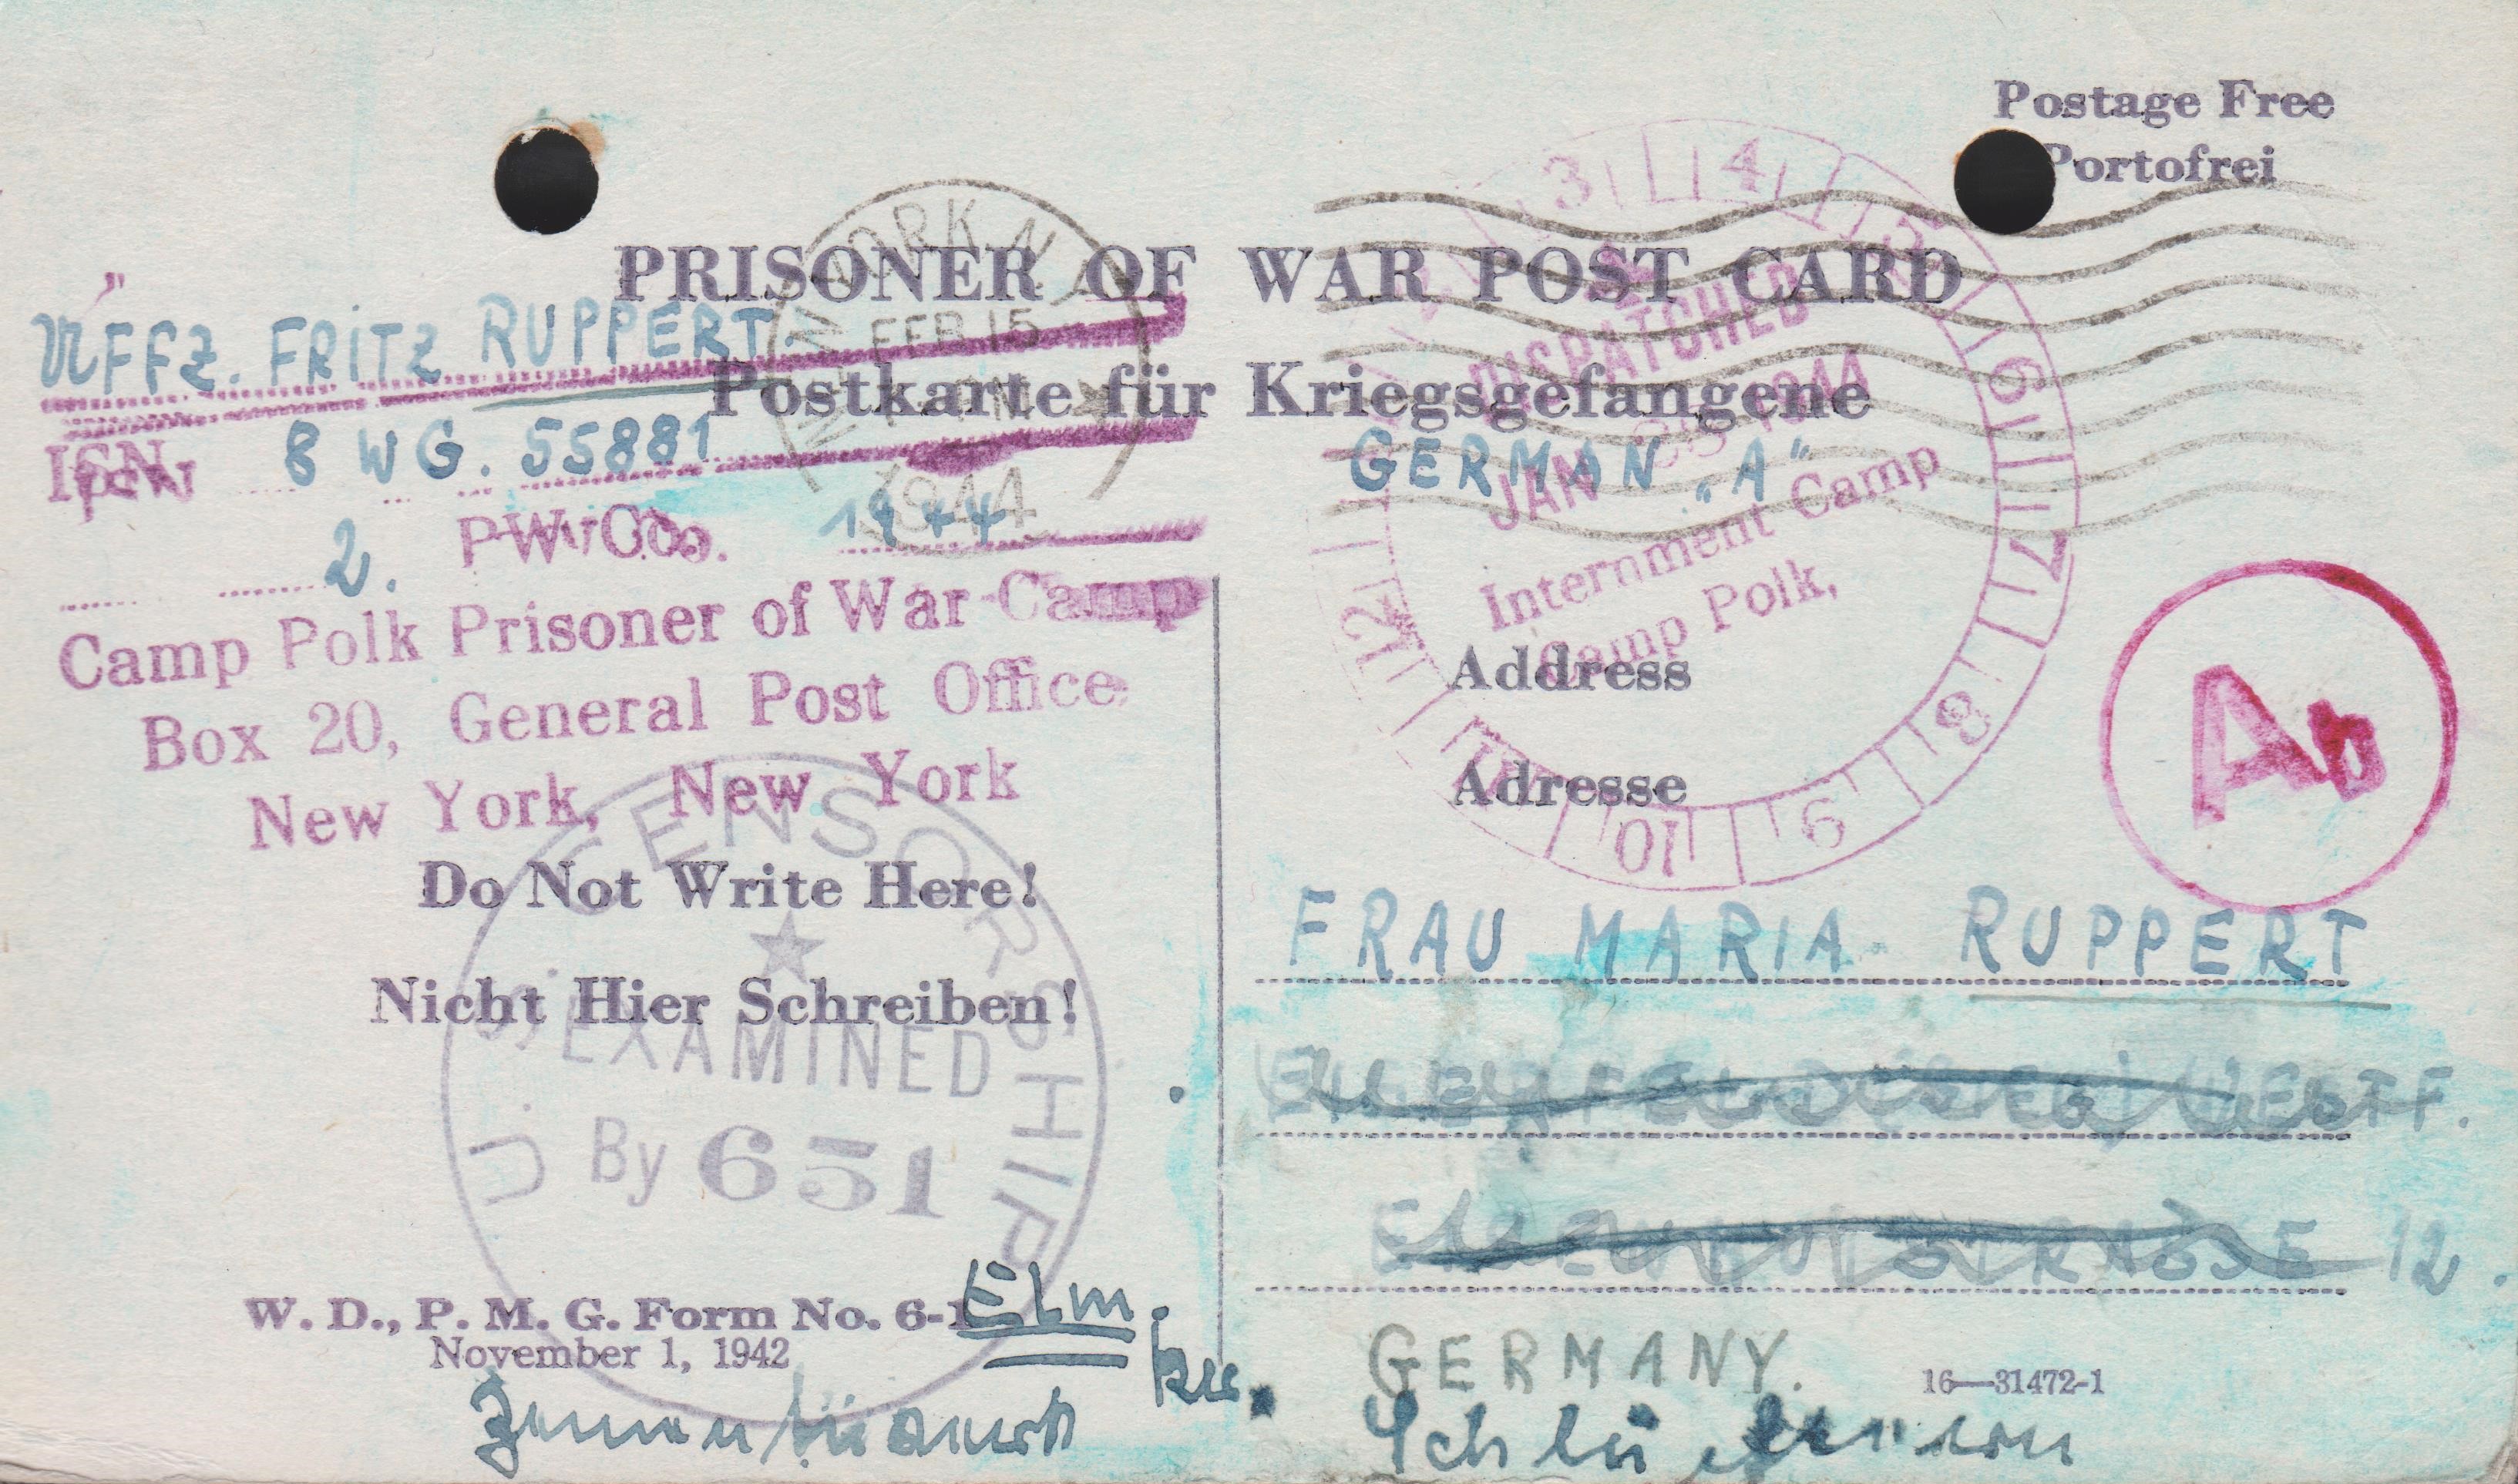 Postage Free
Portofrei
PRISONER OF WAR POST CARD
Postkarte für Kriegsgefangene
UFFZ. FRITZ RUPPERT.
8 WG. 55881
2. PW Co. 1944
Camp Polk Prisoner of War Camp
Box 20, General Post Office
New York, New York
NEW YORK N.Y.
FEB 15
1944
3 4 5 6 7 8 9 10 11 12
DISPATCHED
JAN 1944
Internment Camp
Camp Polk,
GERMAN „A“
Do Not Write Here!
Nicht Hier Schreiben!
U.S. CENSORSHIP
EXAMINED
By 651
W. D., P. M. G. Form No. 6-1
November 1, 1942
Address
Adresse
A
FRAU MARIA RUPPERT
WESTF.
STRAßE 12.
GERMANY.
16—31472-1
Elm.